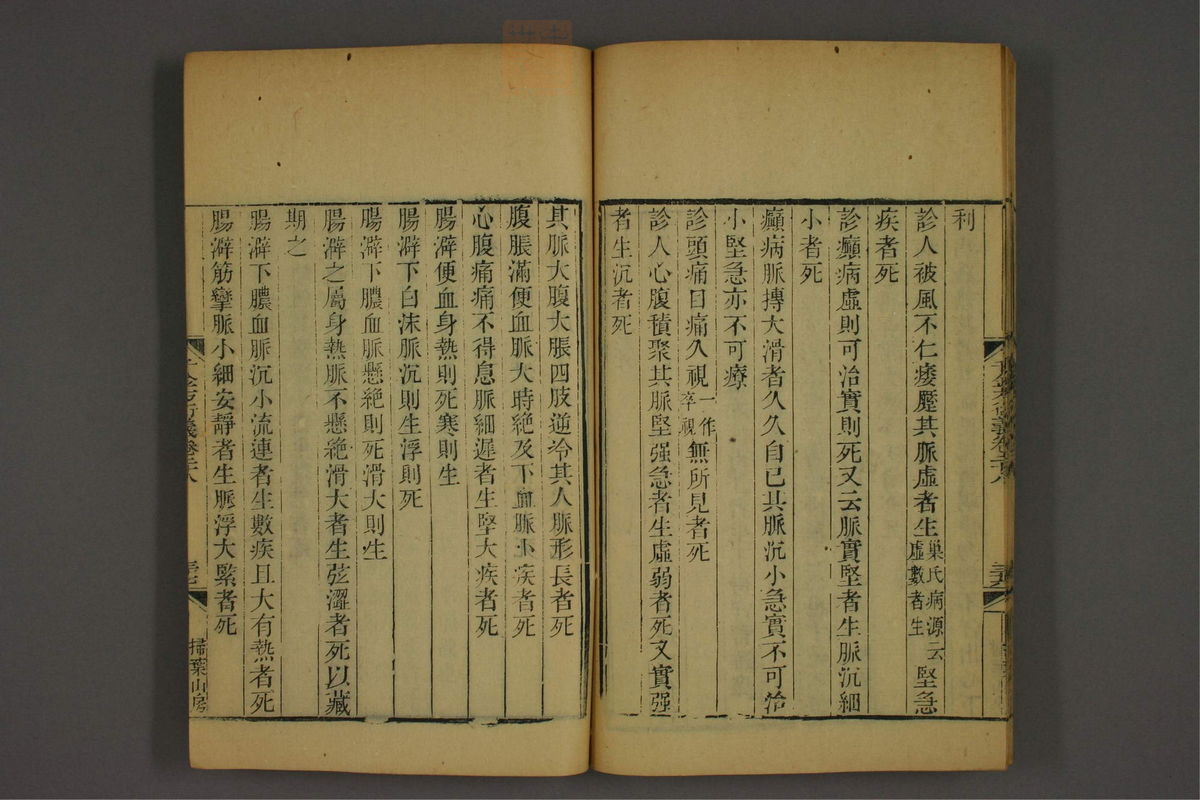 利
診人被風不仁痿蹷其脈虛者生巢氏病源云虛數者生堅急
疾者死
診癲病虛則可治實則死又云脈實堅者生脈沉細
小者死
癲病脈搏大滑者久久自已其脈沉小急實不可治
小堅急亦不可療
診頭痛目痛久視一作卒視無所見者死
診人心腹積聚其脈堅强急者生虛弱者死又實强
者生沉者死
其脈大腹大脹四肢逆冷其人脈形長者死
腹脹滿便血脈大時絶及下血脈小疾者死
心腹痛痛不得息脈細遲者生堅大疾者死
腸澼便血身熱則死寒則生
腸澼下白沫脈沉則生浮則死
腸澼下膿血脈懸絶則死滑大則生
腸澼之屬身熱脈不懸絶滑大者生弦澀者死以藏
期之
腸澼下膿血脈沉小流連者生數疾且大有熱者死
腸澼筋攣脈小細安靜者生脈浮大緊者死
千金方衍義卷二十八
掃葉山房